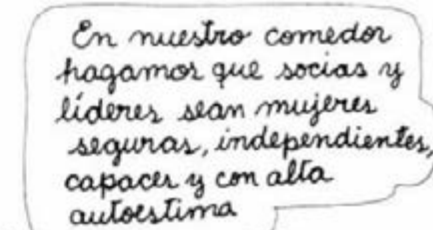 En nuestro comedor
hagamos que socias y
líderes sean mujeres
seguras, independientes,
capaces y con alta
autoestima